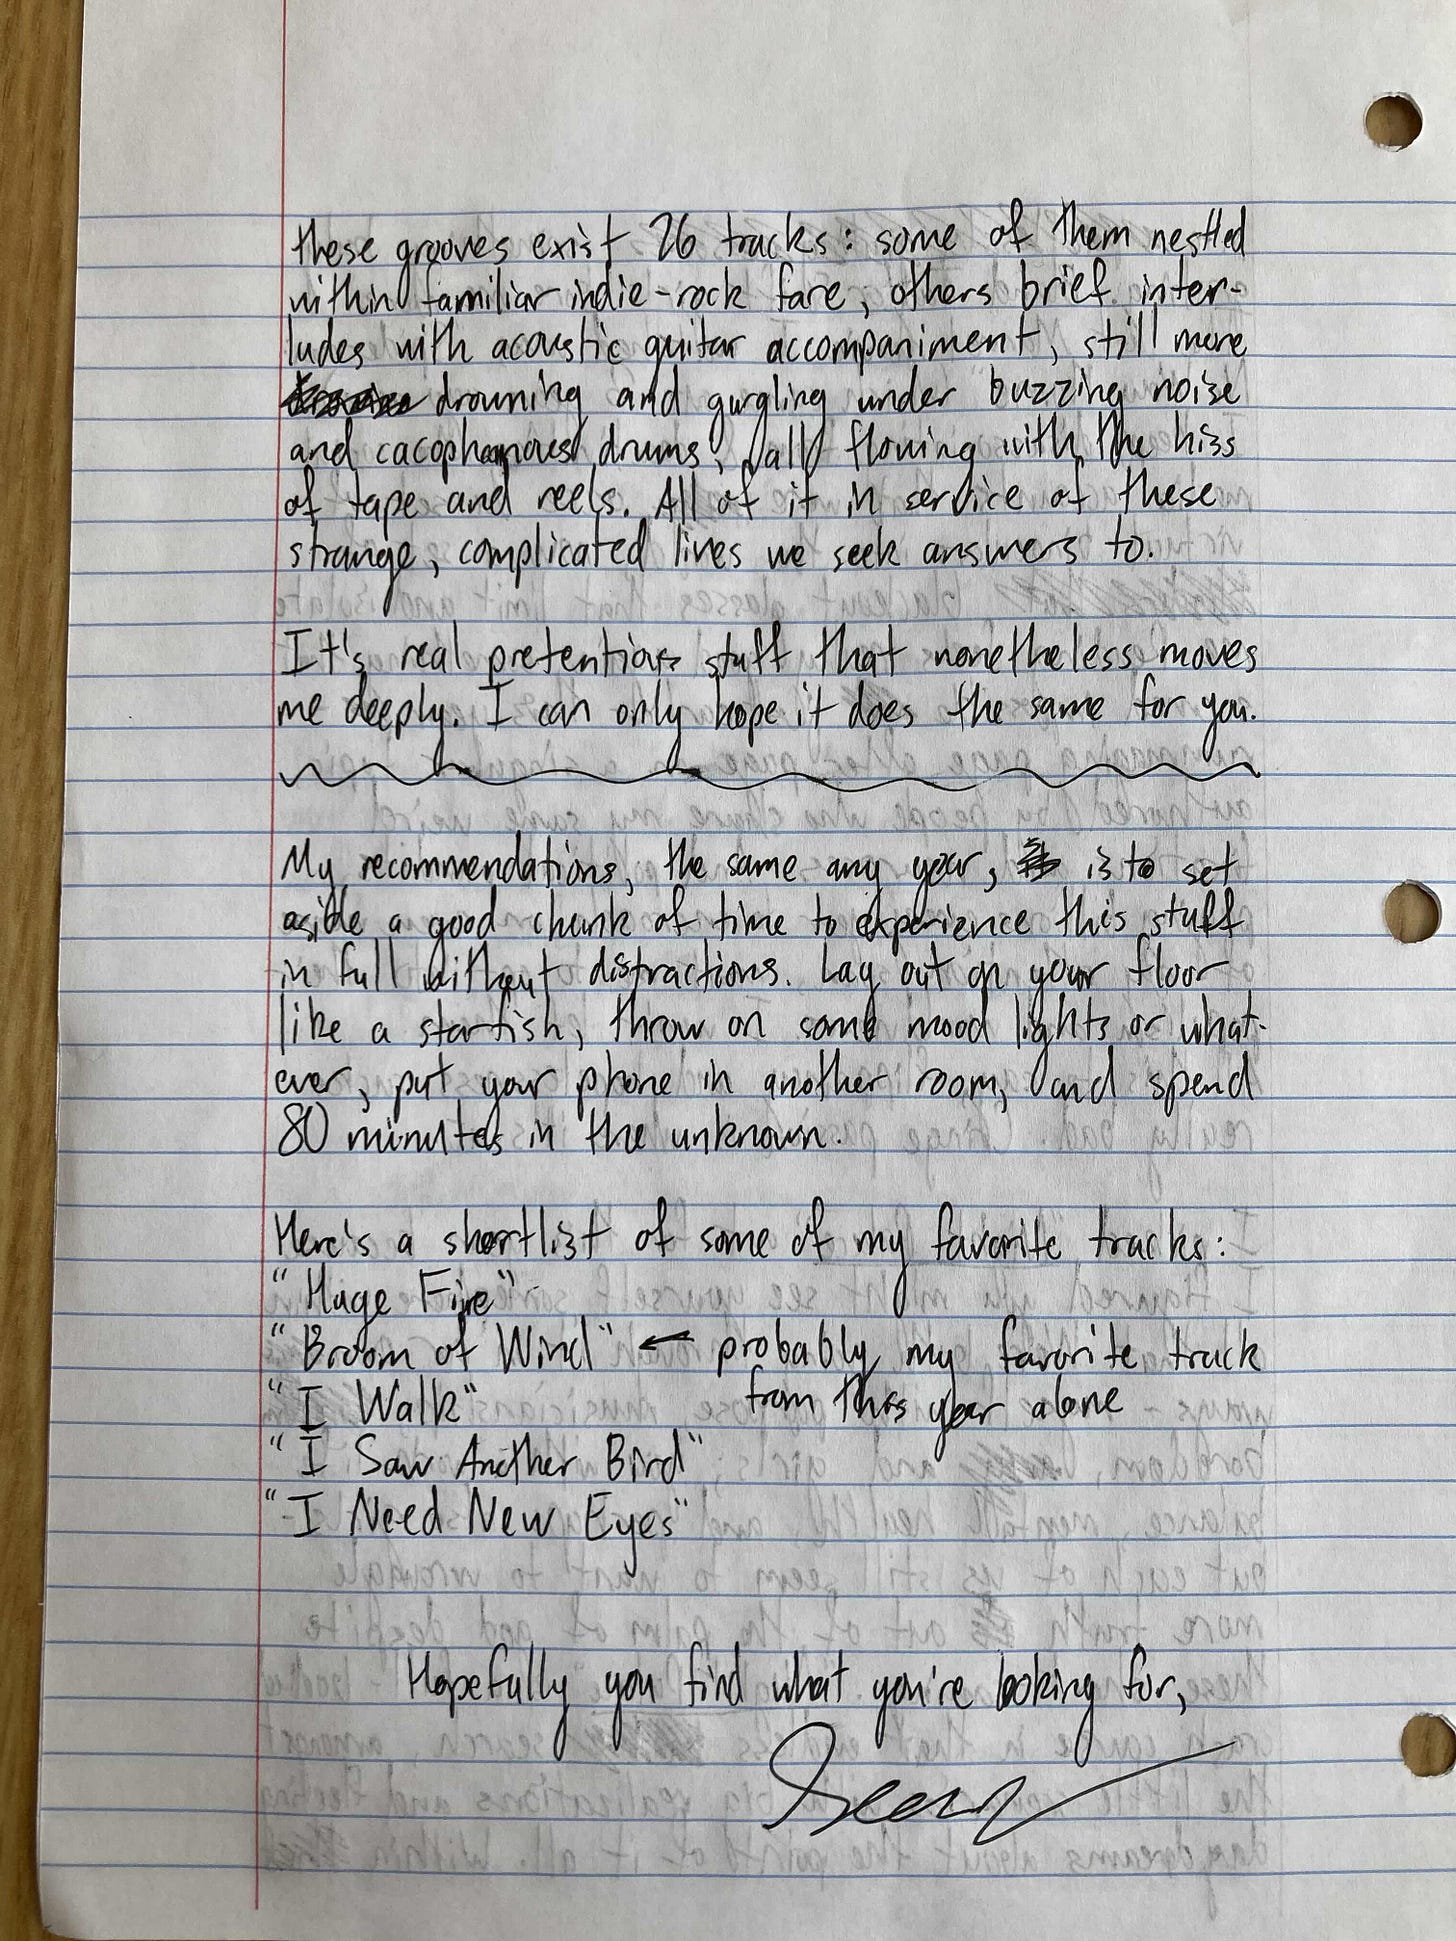 these grooves exist 26 tracks: some of them nestled
within familiar indie-rock fare, others brief inter-
ludes with acoustic guitar accompaniment, still more
drowning and gurgling under buzzing noise
and cacophonous drums, all flowing with the hiss
of tape and reels. All of it in service of these
strange, complicated lives we seek answers to.
It's real pretentious stuff that nonetheless moves
me deeply. I can only hope it does the same for you.
My recommendations, the same any year, is to set
aside a good chunk of time to experience this stuff
in full without distractions. Lay out on your floor
like a starfish, throw on some mood lights or what-
ever, put your phone in another room, and spend
80 minutes in the unknown.
Here's a shortlist of some of my favorite tracks:
"Huge Fire"
"Broom of Wind" ← probably my favorite track
"I Walk" from this year alone
"I Saw Another Bird"
"I Need New Eyes"
Hopefully you find what you're looking for,
Sean